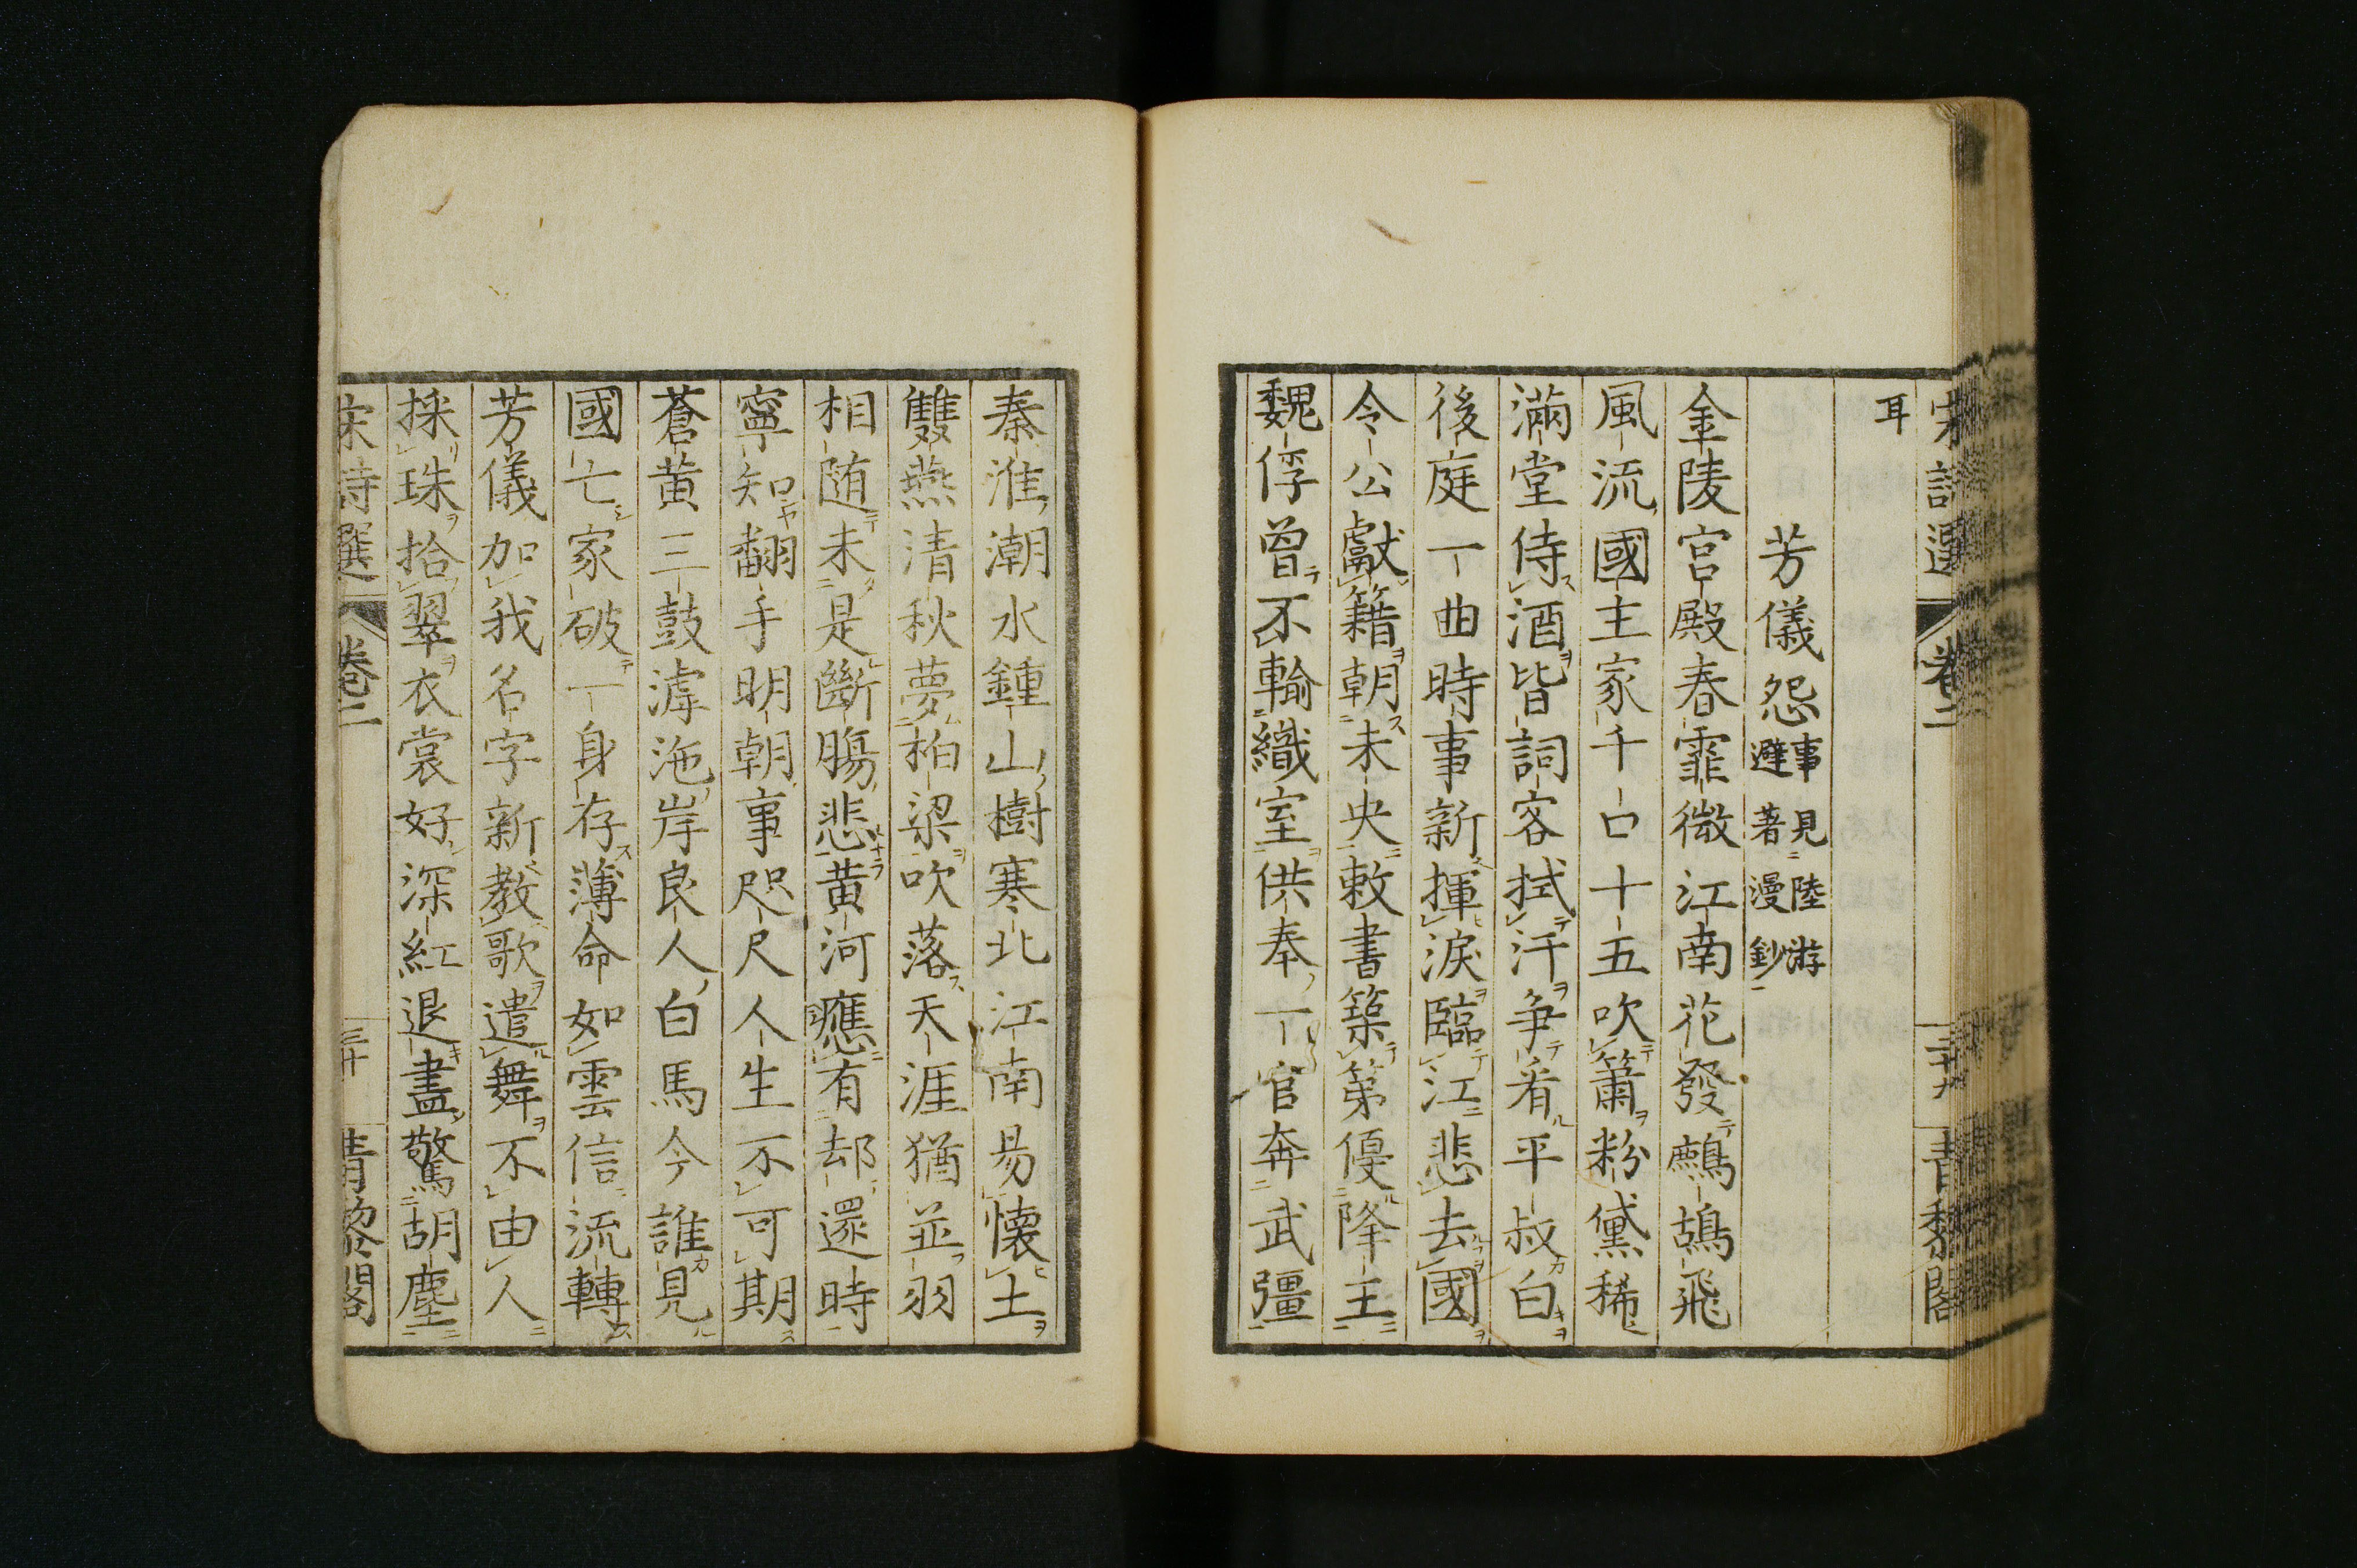 宋詩選 卷二 三十九 青黎閣
耳
芳儀怨 事見陸游
避著漫鈔
金陵宮殿春霏微江南花發鷓鴣飛
風流國主家千口十五吹簫粉黛稀
滿堂侍酒皆詞客拭汗争看平叔白
後庭一曲時事新揮淚臨江悲去國
令公獻籍朝未央敕書築第優降王
魏俘曾不輸織室供奉一官奔武彊
秦淮潮水鍾山樹寒北江南易懷土
雙燕清秋夢柏梁吹落天涯猶並羽
相随未是斷膓悲黄河應有却還時
寧知翻手明朝事咫尺人生不可期
蒼黄三鼓滹沱岸良人白馬今誰見
國亡家破一身存薄命如雲信流轉
芳儀加我名字新教歌遣舞不由人
採珠拾翠衣裳好深紅退盡驚胡塵
宋詩選 卷二 三十 青黎閣